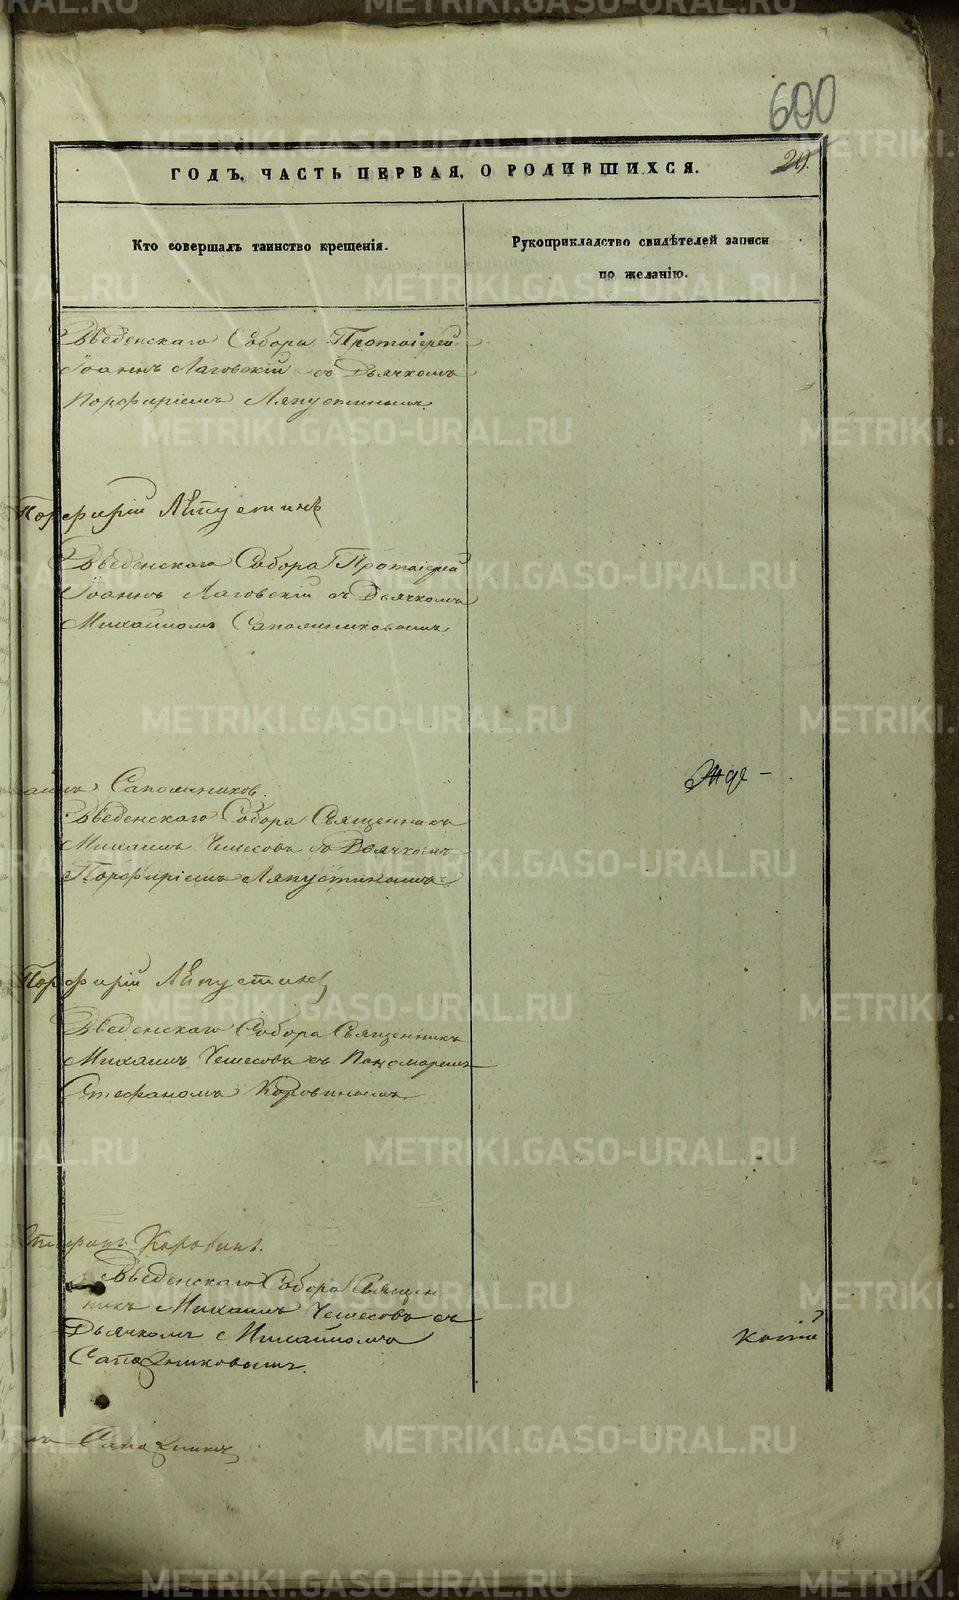 600
20.
ГОДЪ, ЧАСТЬ ПЕРВАЯ, О РОДИВШИХСЯ.
Кто совершалъ таинство крещенія.
Рукоприкладство свидѣтелей записи
по желанію.
Введенскаго Собора Протоіерей
Іоаннъ Лаговскій съ Дьячкомъ
Порфиріемъ Ляпустинымъ.
Порфирій Ляпустинъ
Введенскаго Собора Протоіерей
Іоаннъ Лаговскій съ Дьячкомъ
Михаиломъ Сапожниковымъ.
Сапожников.
Введенскаго Собора Священникъ
Михаилъ Чешесовъ съ Дьячкомъ
Порфиріемъ Ляпустинымъ.
Порфирій Ляпустинъ
Введенскаго Собора Священникъ
Михаилъ Чешесовъ съ Пономаремъ
Стефаномъ Коровинымъ.
Стефанъ Коровинъ.
Введенскаго Собора Священ
никъ Михаилъ Чешесовъ съ
Дьячкомъ Михаиломъ
Сапожниковымъ.
METRIKI.GASO-URAL.RU